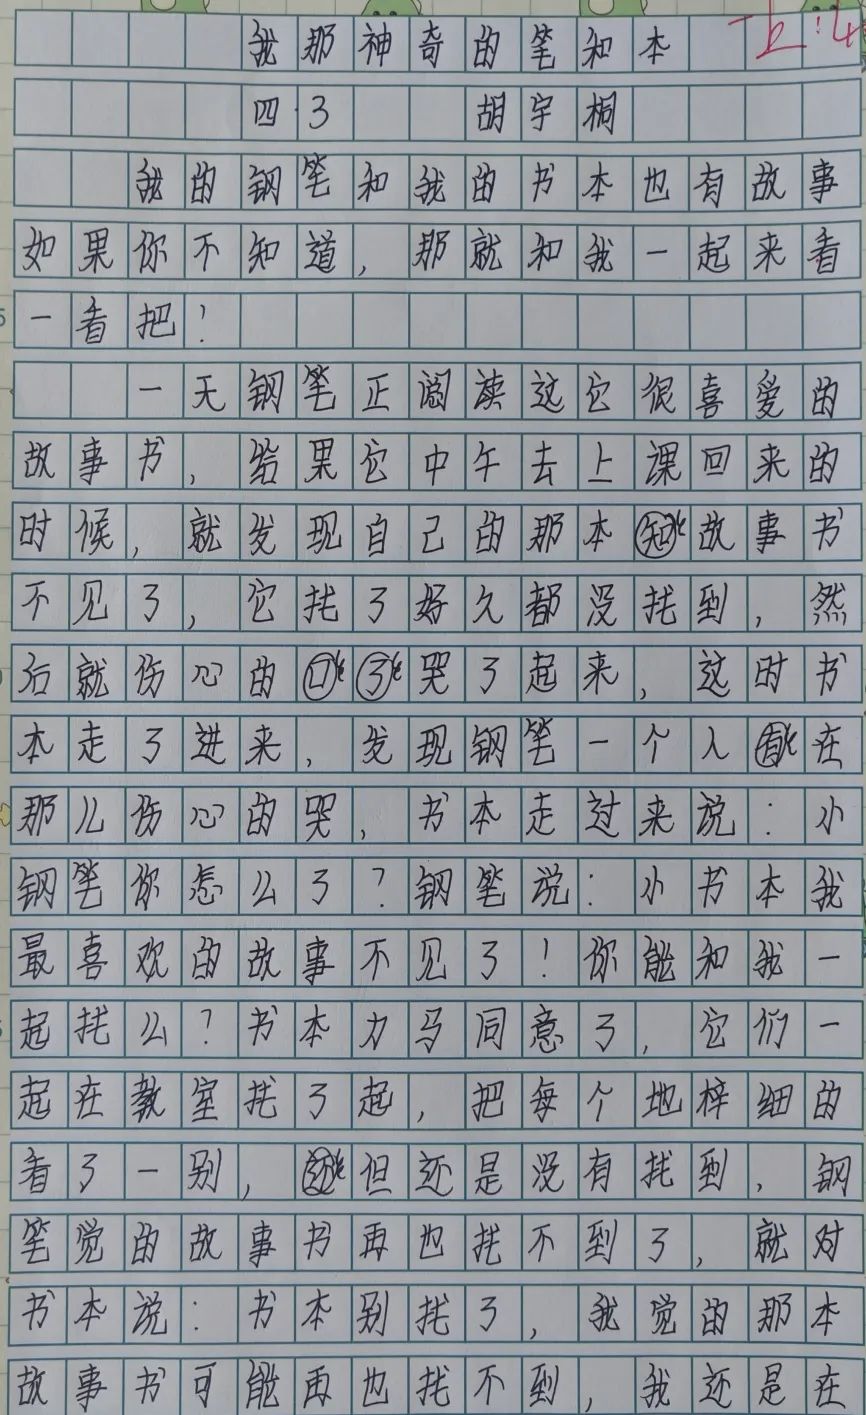 我那神奇的笔和本
四·3 胡宇桐
我的钢笔和我的书本也有故事
如果你不知道，那就和我一起来看
一看把！
一天钢笔正阅读这它很喜爱的
故事书，结果它中午去上课回来的
时候，就发现自己的那本故事书
不见了，它找了好久都没找到，然
后就伤心的哭了起来，这时书
本走了进来，发现钢笔一个人在
那儿伤心的哭，书本走过来说：小
钢笔你怎么了？钢笔说：小书本我
最喜欢的故事不见了！你能和我一
起找么？书本力马同意了，它们一
起在教室找了起，把每个地梓细的
看了一别，但还是没有找到，钢
笔觉的故事书再也找不到了，就对
书本说：书本别找了，我觉的那本
故事书可能再也找不到，我还是在